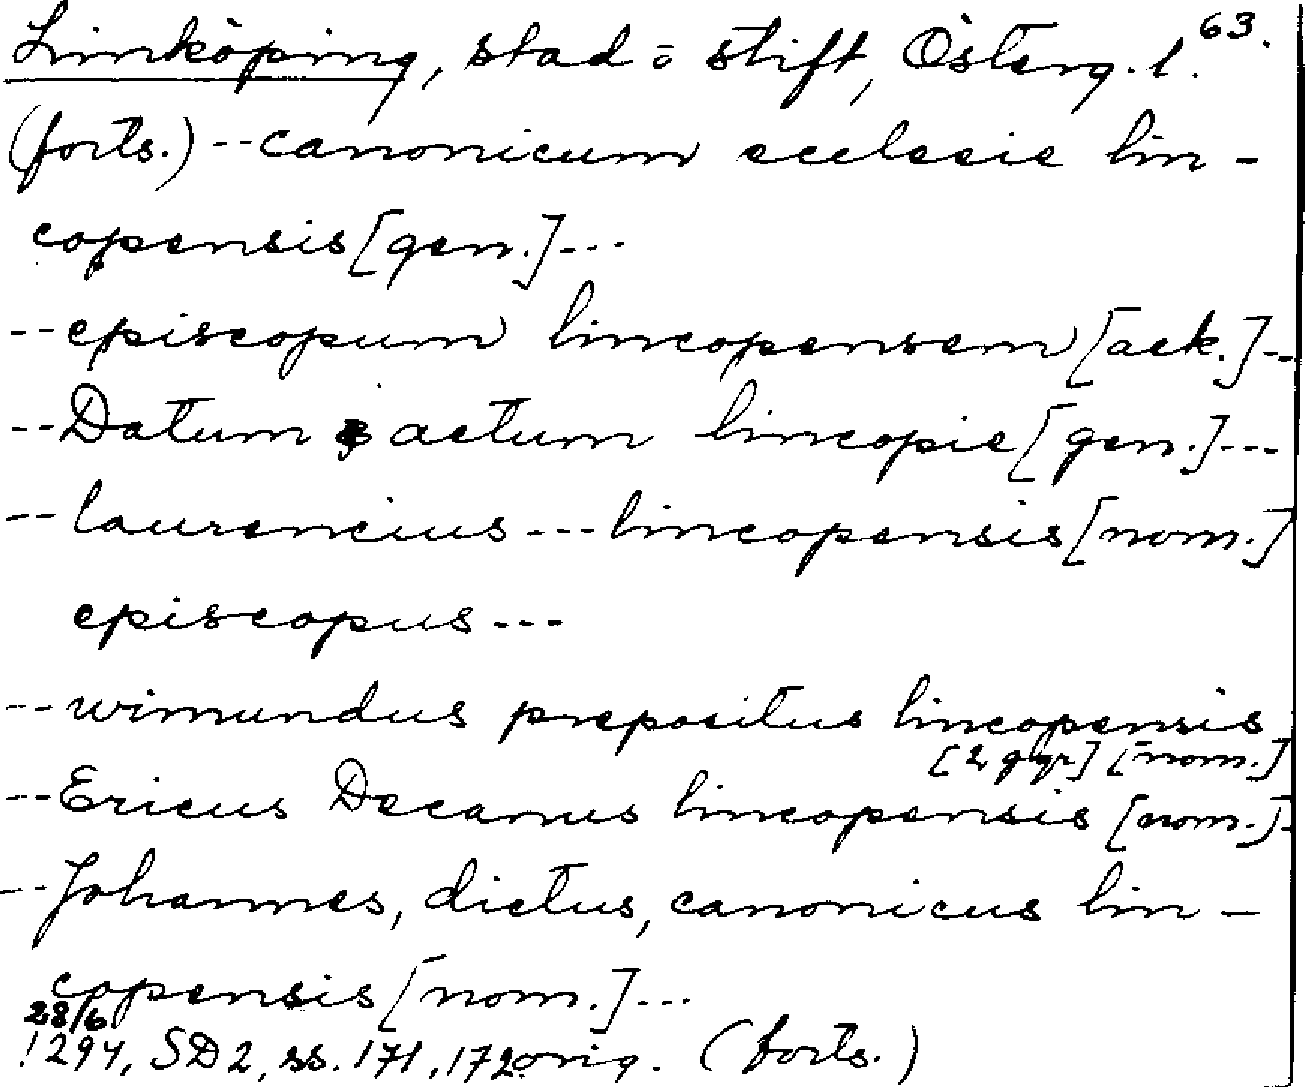 63.
Linköping, stad o stift, Österg. l.
(forts.) -- canonicum ecclesie lin-
copensis [gen.] ---
-- episcopum lincopensem [ack.] --
-- Datum & actum lincopie [gen.] ---
-- laurencius --- lincopensis [nom.]
episcopus ---
-- wimundus prepositus lincopensis
[2 ggr] [nom.]
-- Ericus Decanus lincopensis [nom.] -
-- Johannes, dictus, canonicus lin-
copensis [nom.] ---
28/6
1294, SD 2, ss. 171, 172 orig. (forts.)